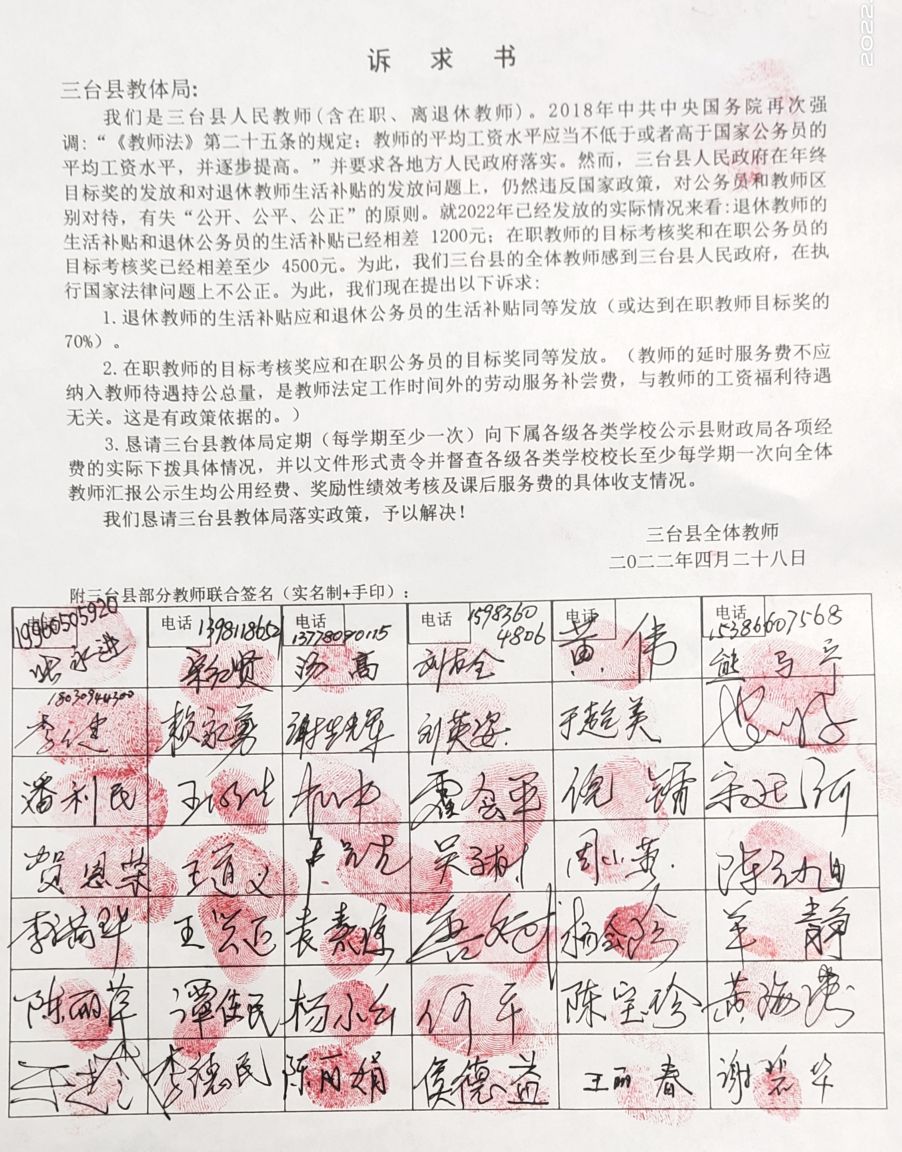 2022.
诉 求 书
三台县教体局:
我们是三台县人民教师(含在职、离退休教师)。2018年中共中央国务院再次强
调:“《教师法》第二十五条的规定:教师的平均工资水平应当不低于或者高于国家公务员的
平均工资水平,并逐步提高。”并要求各地方人民政府落实。然而,三台县人民政府在年终
目标奖的发放和对退休教师生活补贴的发放问题上,仍然违反国家政策,对公务员和教师区
别对待,有失“公开、公平、公正”的原则。就2022年已经发放的实际情况来看:退休教师的
生活补贴和退休公务员的生活补贴已经相差 1200元;在职教师的目标考核奖和在职公务员的
目标考核奖已经相差至少 4500元。为此,我们三台县的全体教师感到三台县人民政府,在执
行国家法律问题上不公正。为此,我们现在提出以下诉求:
1.退休教师的生活补贴应和退休公务员的生活补贴同等发放(或达到在职教师目标奖的
70%)。
2.在职教师的目标考核奖应和在职公务员的目标奖同等发放。(教师的延时服务费不应
纳入教师待遇持公总量,是教师法定工作时间外的劳动服务补尝费,与教师的工资福利待遇
无关。这是有政策依据的。)
3.恳请三台县教体局定期(每学期至少一次)向下属各级各类学校公示县财政局各项经
费的实际下拨具体情况,并以文件形式责令并督查各级各类学校校长至少每学期一次向全体
教师汇报公示生均公用经费、奖励性绩效考核及课后服务费的具体收支情况。
我们恳请三台县教体局落实政策,予以解决!
三台县全体教师
二〇二二年四月二十八日
附三台县部分教师联合签名(实名制+手印):
19960505920 电话 电话 13778090115 电话 1598360 4806 电话 电话 15386607568
汤 高 黄 伟
18030944300
赖 勇 刘英姿 于超美
潘利民 霍会军 倪
贺恩荣 王道义 周小英
袁素琼 羊 静
陈丽萍 谭佳民 杨永 何平 陈宝珍 黄海
李德民 陈丽娟 侯德益 王丽春 谢碧华